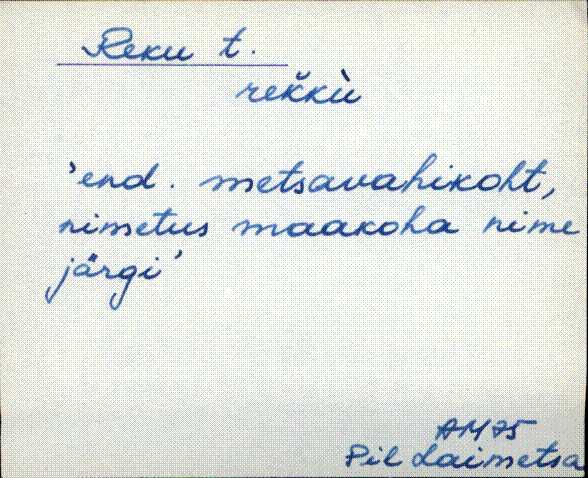 Reku t.
reǩkù
'end. metsavahikoht,
nimetus maakoha nime
järgi'
AM 75
Pil Laimetsa